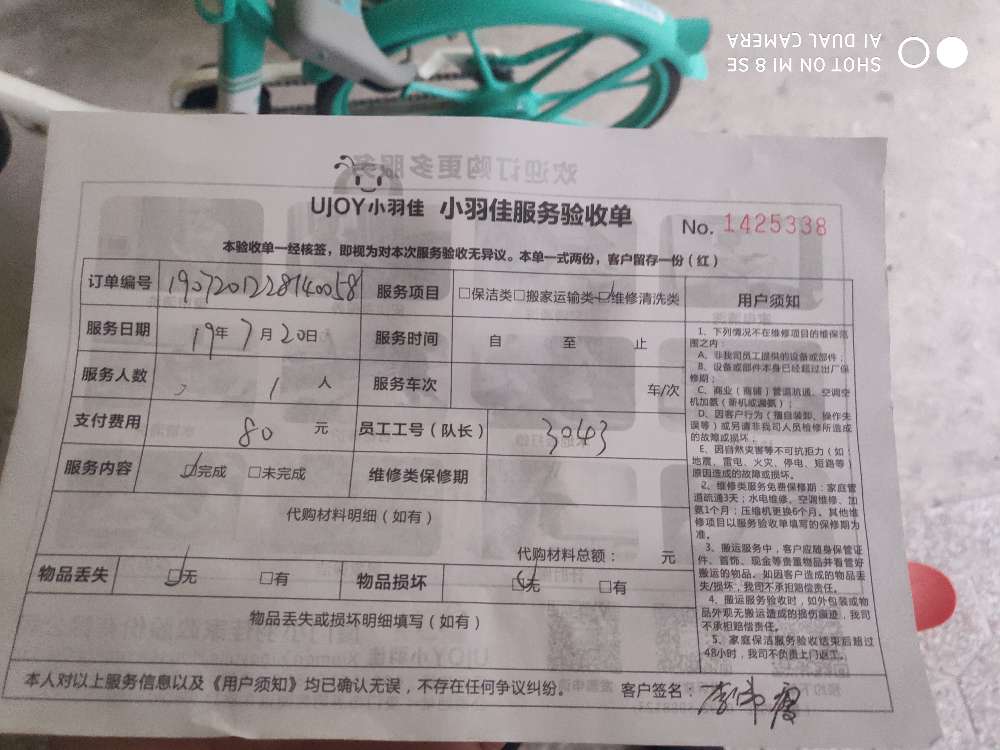 SHOT ON MI 8 SE
AI DUAL CAMERA
欢迎订购更多服务
UJOY小羽佳 小羽佳服务验收单 No. 1425338
本验收单一经核签，即视为对本次服务验收无异议。本单一式两份，客户留存一份（红）
订单编号 1907201228140058 服务项目 □保洁类□搬家运输类□维修清洗类
服务日期 19年7月20日 服务时间 自 至 止
服务人数 1 人 服务车次 车/次
支付费用 80 元 员工工号（队长） 3043
服务内容 □完成 □未完成 维修类保修期
代购材料明细（如有）
代购材料总额： 元
物品丢失 □无 □有 物品损坏 □无 □有
物品丢失或损坏明细填写（如有）
本人对以上服务信息以及《用户须知》均已确认无误，不存在任何争议纠纷。 客户签名：
用户须知
1、下列情况不在维修项目的维保范
围之内：
A、非我司员工提供的设备或部件；
B、设备或部件本身已经超过出厂保
修期；
C、商业（商铺）管道疏通、空调空
机加氨（新机或漏氨）；
D、因客户行为（擅自装卸、操作失
误等）或另请非我司人员检修所造成
的故障或损坏；
E、因自然灾害等不可抗拒力（如：
地震、雷电、火灾、停电、短路等）
原因造成的故障或损坏。
2、维修类服务免费保修期：家庭管
道疏通3天；水电维修、空调维修、加
氨1个月；压缩机更换6个月。其他维
修项目以服务验收单填写的保修期为
准。
3、搬运服务中，客户应随身保管证
件、首饰、现金等贵重物品并看管好
搬运的物品。如因客户造成的物品丢
失/损坏，我司不承担赔偿责任。
4、搬运服务验收时，如外包装或物
品外观无搬运造成的损伤痕迹，我司
不承担赔偿责任。
5、家庭保洁服务验收结束后超过
48小时，我司不负责上门返工。